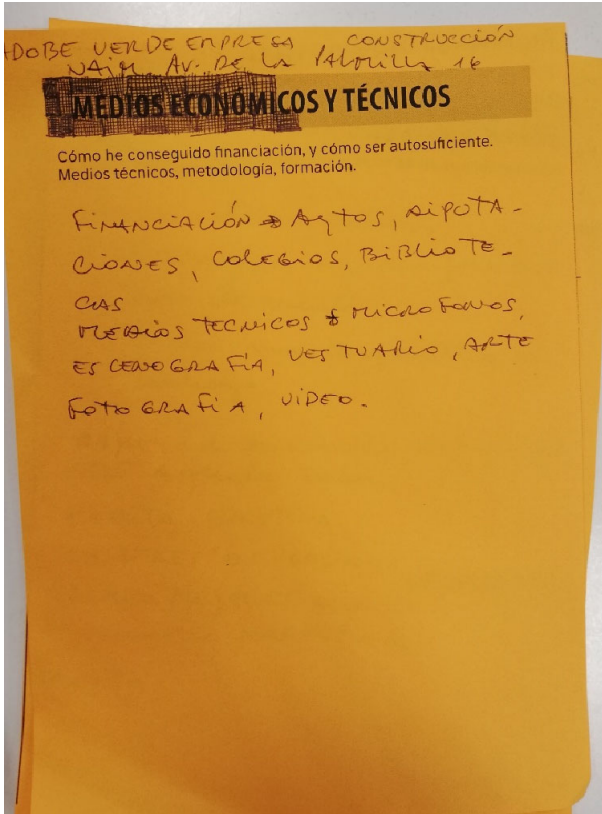 ADOBE VERDE EMPRESA CONSTRUCCIÓN
NAIM AV. DE LA PALMILLA 16
MEDIOS ECONÓMICOS Y TÉCNICOS
Cómo he conseguido financiación, y cómo ser autosuficiente.
Medios técnicos, metodología, formación.
FINANCIACIÓN → AYTOS, DIPUTA-
CIONES, COLEGIOS, BIBLIOTE-
CAS
MEDIOS TECNICOS → MICROFONOS,
ESCENOGRAFÍA, VESTUARIO, ARTE
FOTOGRAFIA, VIDEO.